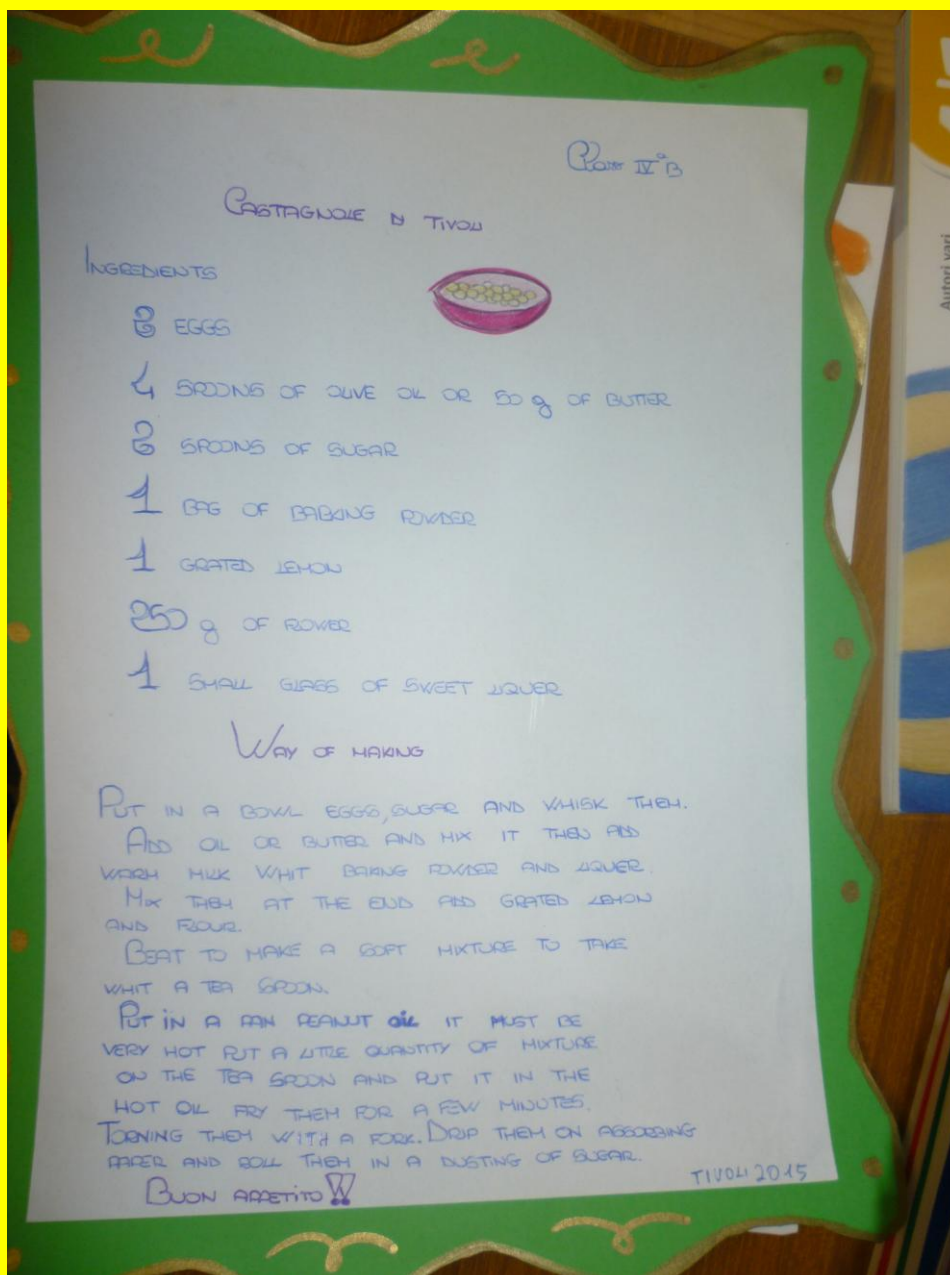 Class IVª B
CASTAGNOLE DI TIVOLI
INGREDIENTS
EGGS
4 SPOONS OF OLIVE OIL OR 50 g OF BUTTER
SPOONS OF SUGAR
1 BAG OF BABKING POWDER
1 GRATED LEMON
250 g OF FLOWER
1 SMALL GLASS OF SWEET LIQUER
WAY OF MAKING
PUT IN A BOWL EGGS, SUGAR AND WHISK THEM.
ADD OIL OR BUTTER AND MIX IT THEN ADD
WARM MILK WHIT BAKING POWDER AND LIQUER.
MIX THEM AT THE END ADD GRATED LEMON
AND FLOUR.
BEAT TO MAKE A SOFT MIXTURE TO TAKE
WHIT A TEA SPOON.
PUT IN A PAN PEANUT OIL IT MUST BE
VERY HOT PUT A LITTLE QUANTITY OF MIXTURE
ON THE TEA SPOON AND PUT IT IN THE
HOT OIL FRY THEM FOR A FEW MINUTES.
TORNING THEM WITH A FORK. DRIP THEM ON ABSORBING
PAPER AND ROLL THEM IN A DUSTING OF SUGAR.
BUON APPETITO!!
TIVOLI 2015
Autori vari